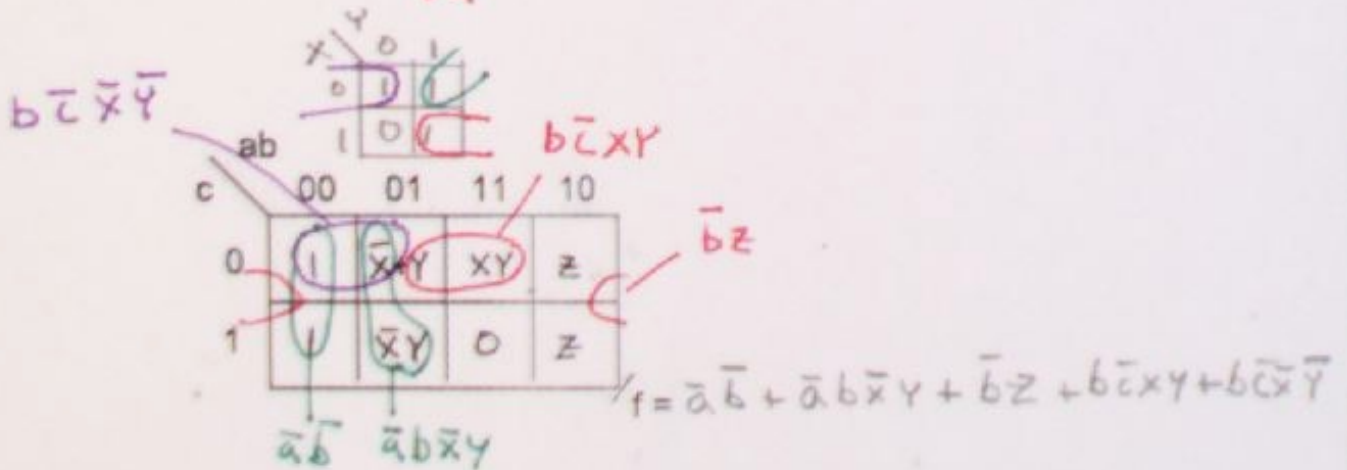 Y
X 0 1
0 1 1
1 0 1
b c̅ X̅ Y̅
b c̅ X Y
ab
c 00 01 11 10
0 1 X̅+Y XY Z
1 1 X̅Y 0 Z
b̅ Z
a̅ b̅ a̅ b X̅ Y
f = a̅ b̅ + a̅ b X̅ Y + b̅ Z + b c̅ X Y + b c̅ X̅ Y̅